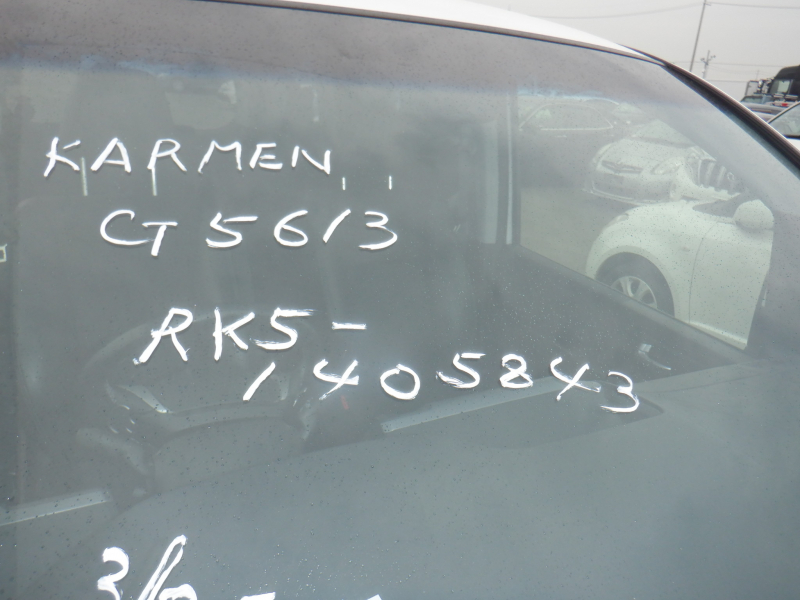 KARMEN
CT 5613
RK5-
1405843